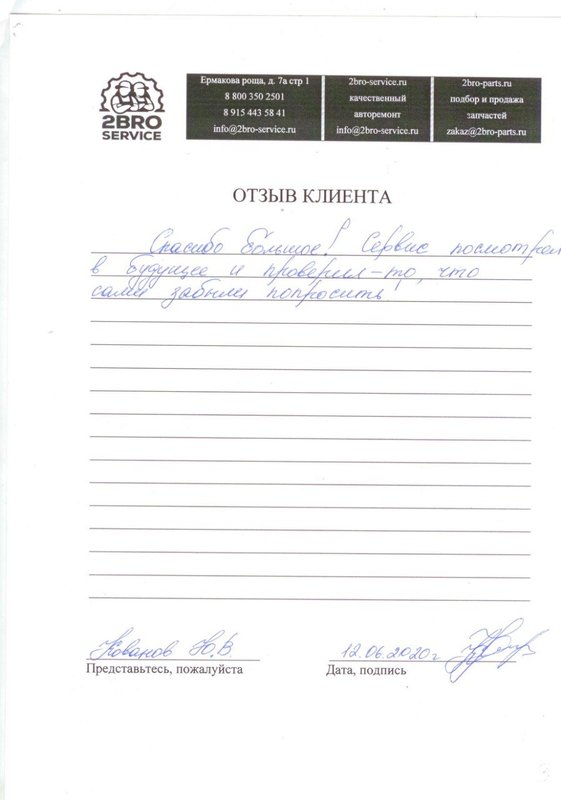 2BRO
SERVICE
Ермакова роща, д. 7а стр 1
8 800 350 2501
8 915 443 58 41
info@2bro-service.ru
2bro-service.ru
качественный
авторемонт
info@2bro-service.ru
2bro-parts.ru
подбор и продажа
запчастей
zakaz@2bro-parts.ru
ОТЗЫВ КЛИЕНТА
Спасибо большое! Сервис посмотрел
в будущее и проверил-то, что
сами забыли попросить
Кованов Ю.В.
12.06.2020г
Представьтесь, пожалуйста
Дата, подпись